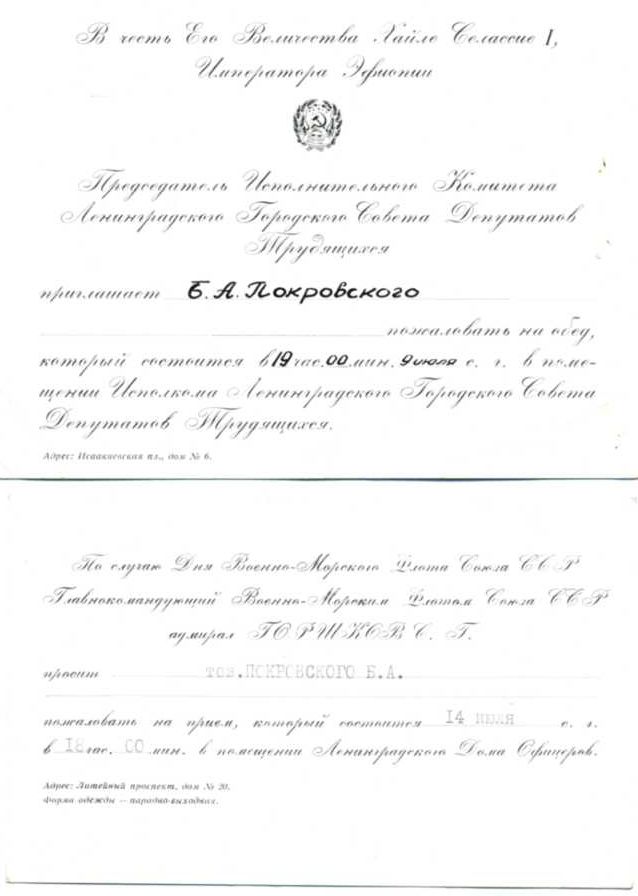 В честь Его Величества Хайле Селассие I,
Императора Эфиопии
Председатель Исполнительного Комитета
Ленинградского Городского Совета Депутатов
Трудящихся
приглашает Б. А. Покровского
пожаловать на обед,
который состоится в 19 час. 00 мин. 9 июля с. г. в поме-
щении Исполкома Ленинградского Городского Совета
Депутатов Трудящихся.
Адрес: Исаакиевская пл., дом № 6.
По случаю Дня Военно-Морского Флота Союза ССР
Главнокомандующий Военно-Морским Флотом Союза ССР
адмирал ГОРШКОВ С. Г.
просит тов. ПОКРОВСКОГО Б.А.
пожаловать на прием, который состоится 14 июля с. г.
в 18 час. 00 мин. в помещении Ленинградского Дома Офицеров.
Адрес: Литейный проспект, дом № 20.
Форма одежды — парадно-выходная.